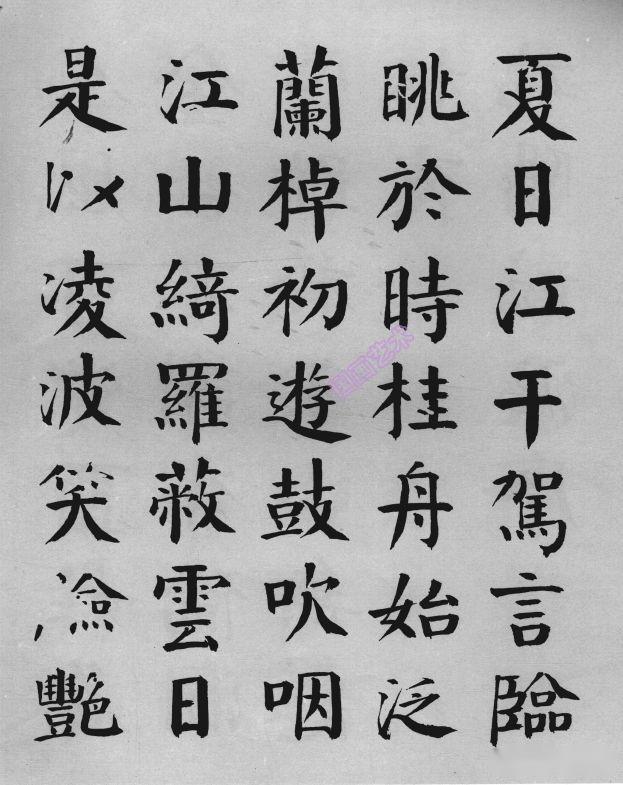 夏日江干駕言臨
眺於時桂舟始泛
蘭棹初遊鼓吹咽
江山綺羅蔽雲日
是以凌波笑臉艷